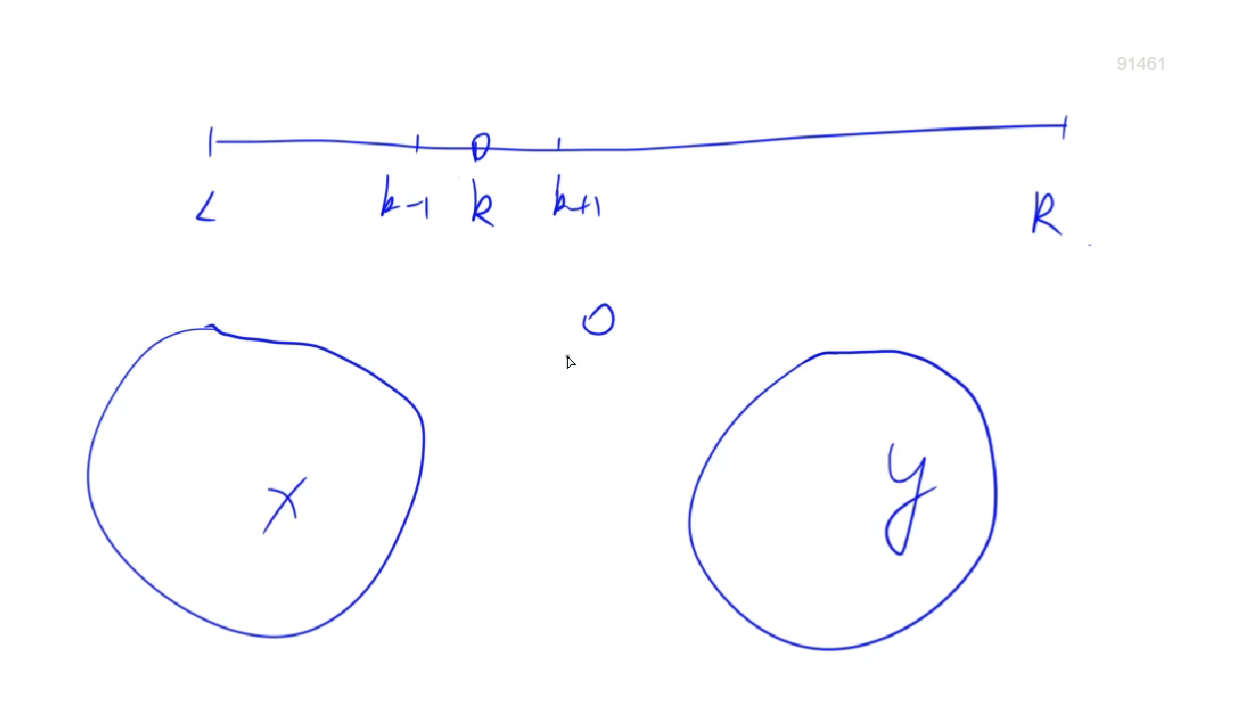 91461
L k-1 k k+1 R
O
x y